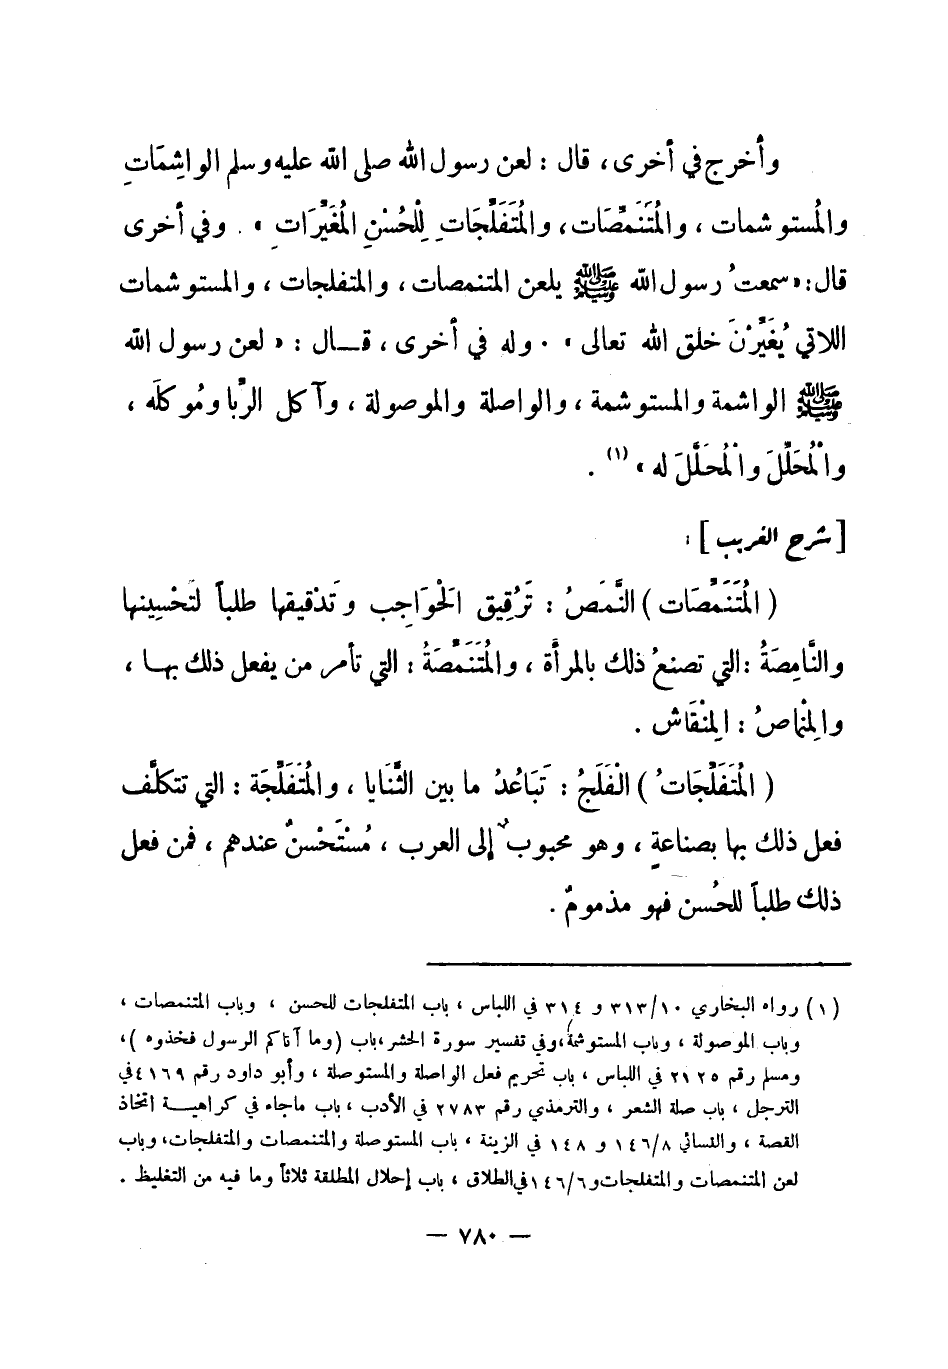 وأخرج في أخرى ، قال : لعن رسول الله صلى الله عليه وسلم الواشِمَاتِ
والمُستوشمات ، والمُتَنَمِّصَات ، والمُتَفَلِّجَاتِ لِلْحُسْنِ المُغَيِّرَاتِ » . وفي أخرى
قال : « سمعتُ رسول الله ﷺ يلعن المتنمصات ، والمتفلجات ، والمستوشمات
اللاتي يُغَيِّرْنَ خلق الله تعالى » . وله في أخرى ، قــال : « لعن رسول الله
ﷺ الواشمة والمستوشمة ، والواصلة والموصولة ، وآكل الرِّبا ومُوكلَه ،
والْمُحَلِّلَ والْمُحَلَّلَ له » (١) .
[ شرح الغريب ] :
( المُتَنَمِّصَات ) النَّمَصُ : تَرْقِيق الحْوَاجِب وتَدْقيقها طلباً لتَحْسِينها
والنَّامِصَةُ : التي تصنعُ ذلك بالمرأة ، والمُتَنَمِّصَةُ : التي تأمر من يفعل ذلك بهـا ،
والمِنْماصُ : المِنْقَاش .
( المُتَفَلِّجَاتُ ) الْفَلَجُ : تَبَاعُدُ ما بين الثَّنَايا ، والمُتَفَلِّجَة : التي تتكلَّف
فعل ذلك بها بصناعةٍ ، وهو محبوبٌ إلى العرب ، مُسْتَحْسنٌ عندهم ، فمن فعل
ذلك طلباً للحُسن فهو مذمومٌ .
(١) رواه البخاري ٣١٣/١٠ و ٣١٤ في اللباس ، باب المتفلجات للحسن ، وباب المتنمصات ،
وباب الموصولة ، وباب المستوشمة ، وفي تفسير سورة الحشر ، باب ( وما آتاكم الرسول فخذوه ) ،
ومسلم رقم ٢١٢٥ في اللباس ، باب تحريم فعل الواصلة والمستوصلة ، وأبو داود رقم ٤١٦٩ في
الترجل ، باب صلة الشعر ، والترمذي رقم ٢٧٨٣ في الأدب ، باب ماجاء في كراهيـــة اتخاذ
القصة ، والنسائي ١٤٦/٨ و ١٤٨ في الزينة ، باب المستوصلة والمتنمصات والمتفلجات ، وباب
لعن المتنمصات والمتفلجات و ١٤٦/٦ في الطلاق ، باب إحلال المطلقة ثلاثاً وما فيه من التغليظ .
— ٧٨٠ —